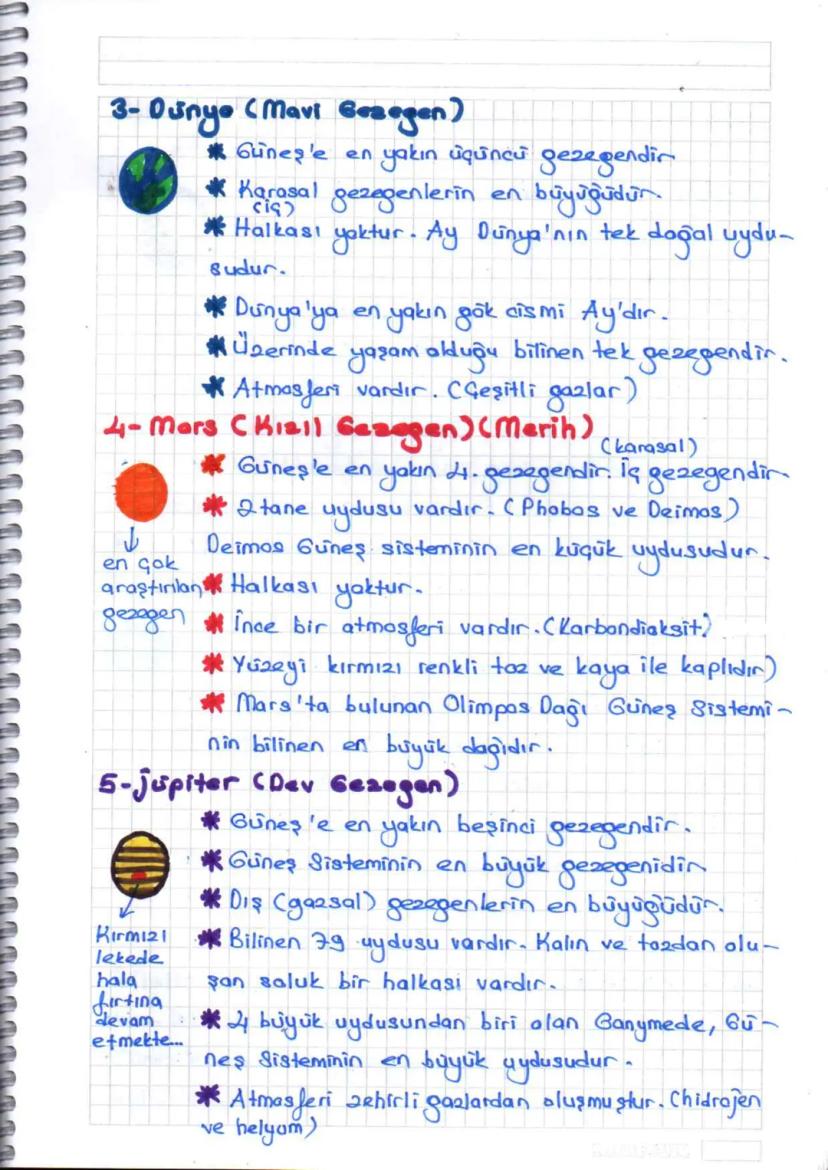 3- Dünya (Mavi Gezegen)
* Güneş'e en yakın üçüncü gezegendir
* Karasal gezegenlerin en büyüğüdür.
(iç)
* Halkası yoktur. Ay Dünya'nın tek doğal uydu-
sudur.
* Dünya'ya en yakın gök cismi Ay'dır.
* Üzerinde yaşam olduğu bilinen tek gezegendir.
* Atmosferi vardır. (Çeşitli gazlar)
4- Mars (Kızıl Gezegen) (Merih)
(karasal)
* Güneş'e en yakın 4. gezegendir. İç gezegendir.
* 2 tane uydusu vardır. (Phobos ve Deimos)
Deimos Güneş sisteminin en küçük uydusudur.
en çok
araştırılan
gezegen
* Halkası yoktur.
* İnce bir atmosferi vardır. (Karbondioksit)
* Yüzeyi kırmızı renkli toz ve kaya ile kaplıdır)
* Mars'ta bulunan Olimpos Dağı Güneş Sistemi-
nin bilinen en büyük dağıdır.
5- Jüpiter (Dev Gezegen)
* Güneş'e en yakın beşinci gezegendir.
* Güneş Sisteminin en büyük gezegenidir
* Dış (gazsal) gezegenlerin en büyüğüdür.
* Bilinen 79 uydusu vardır. Kalın ve tozdan olu-
şan soluk bir halkası vardır.
Kırmızı
lekede
hala
fırtına
devam
etmekte...
* 4 büyük uydusundan biri olan Ganymede, Gü-
neş Sisteminin en büyük uydusudur.
* Atmosferi zehirli gazlardan oluşmuştur. (hidrojen
ve helyum)